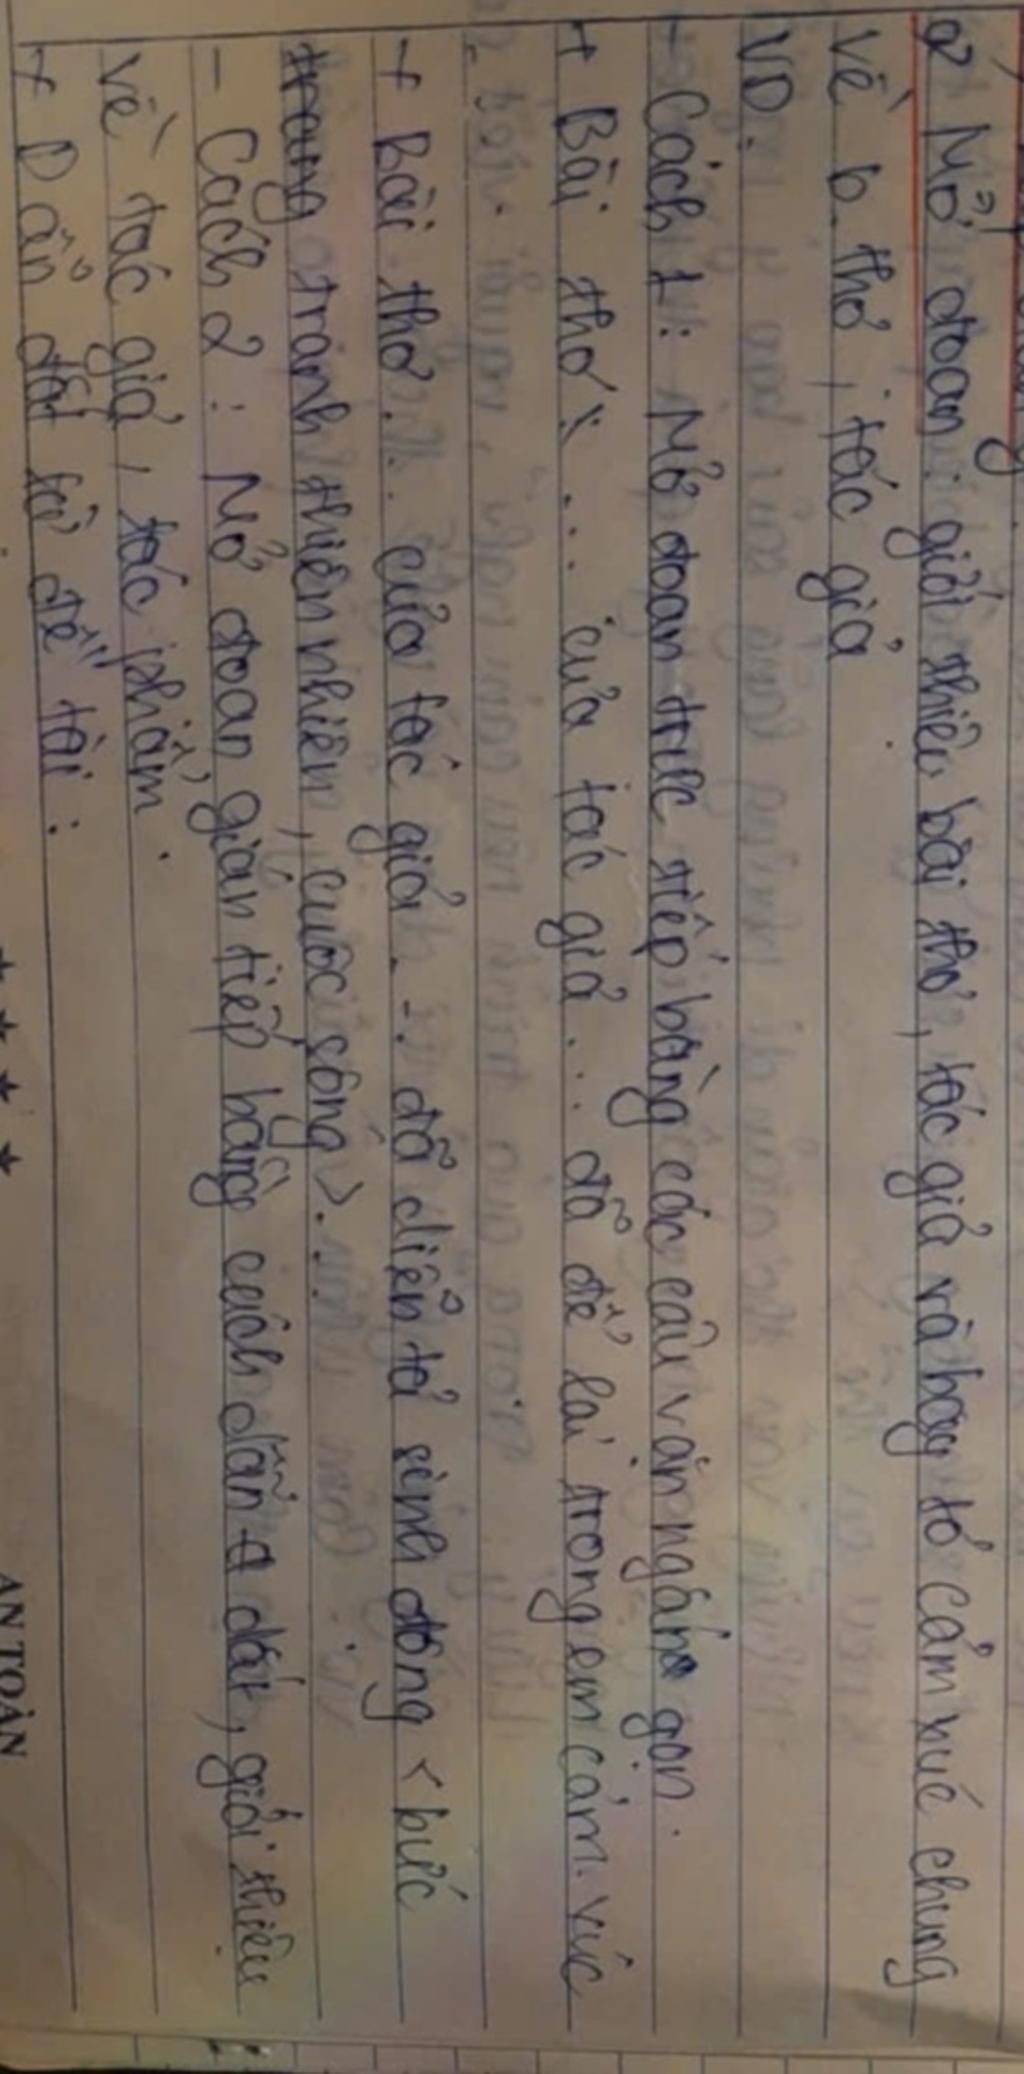 a, Mở đoạn: giới thiệu bài thơ, tác giả và bày tỏ cảm xúc chung
về b. thơ, tác giả
VD:
- Cách 1: Mở đoạn trực tiếp bằng các câu văn ngắn gọn.
+ Bài thơ: ... của tác giả ... đã để lại trong em cảm xúc
+ Bài thơ ... của tác giả ... đã diễn tả sinh động < bức
tranh thiên nhiên, cuộc sống>.
- Cách 2: Mở đoạn gián tiếp bằng cách dẫn dắt, giới thiệu
về tác giả, tác phẩm.
+ Dẫn dắt từ đề tài:
AN TOÀN